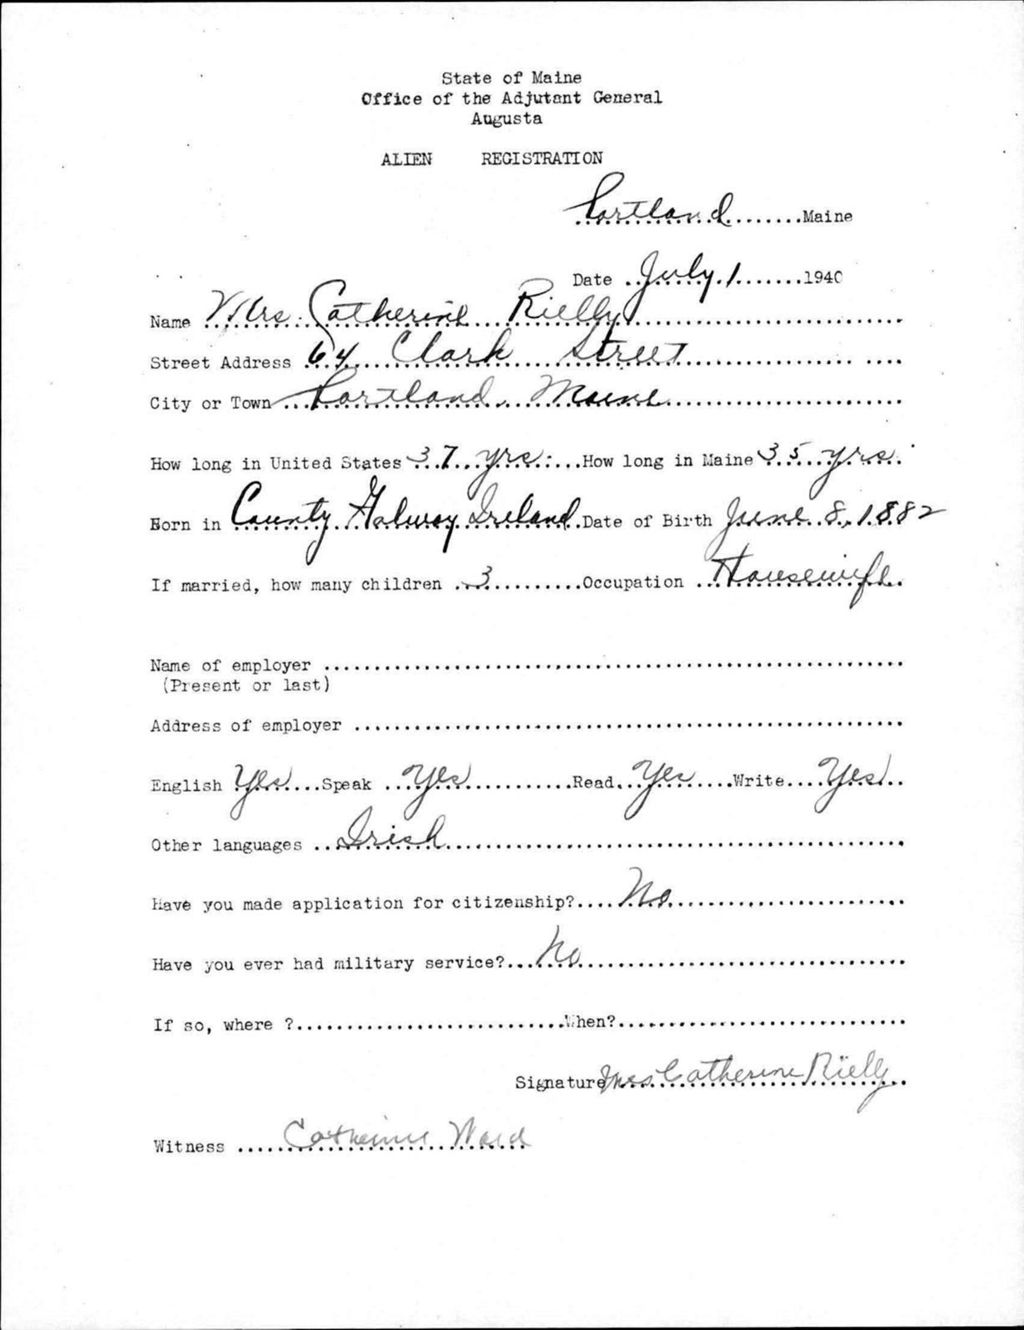 State of Maine
Office of the Adjutant General
Augusta
ALIEN REGISTRATION
Portland........Maine
Date ..July 1.......1940
Name Mrs. Catherine Rielly
Street Address 64 Clark Street
City or Town Portland, Maine
How long in United States 37 yrs. How long in Maine 35 yrs.
Born in County Galway Ireland Date of Birth June 8, 1882
If married, how many children 3 Occupation Housewife
Name of employer
(Present or last)
Address of employer
English Yes Speak Yes Read Yes Write Yes
Other languages Irish
Have you made application for citizenship? No
Have you ever had military service? No
If so, where ? When?
Signature Mrs Catherine Rielly
Witness Catherine Ward